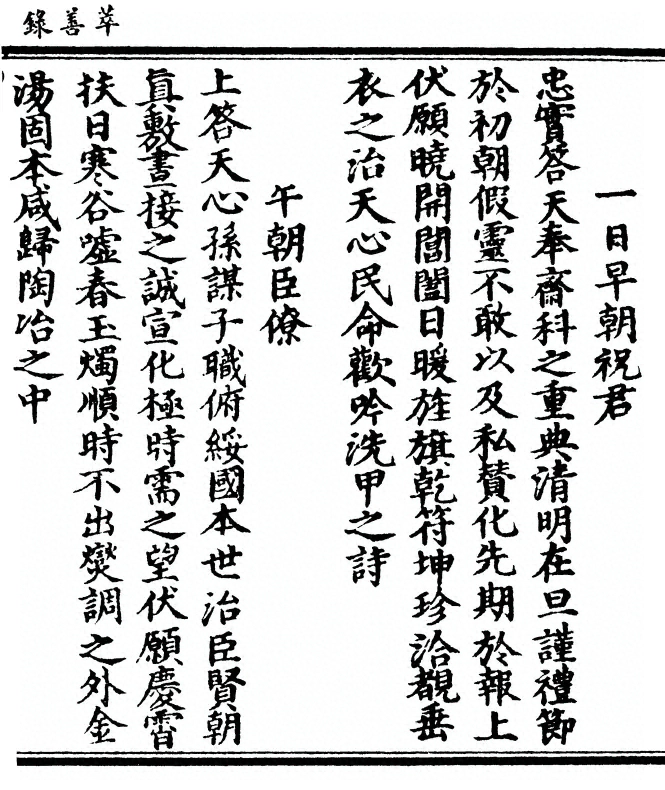 萃善錄
一日早朝祝君
忠實答天奉齋科之重典清明在旦謹禮節
於初朝假靈不敢以及私賛化先期於報上
伏願曉開閶闔日暖旌旗乾符坤珍洽覩垂
衣之治天心民命歡吟洗甲之詩
午朝臣僚
上答天心孫謀子職俯綏國本世治臣賢朝
真敷晝接之誠宣化極時需之望伏願慶霄
扶日寒谷噓春玉燭順時不出爕調之外金
湯固本咸歸陶冶之中